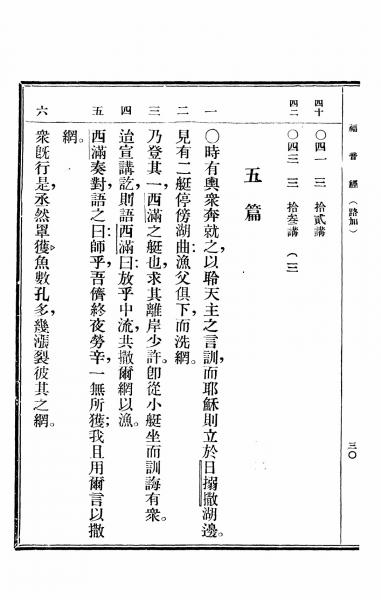 福音經 (路加) 三〇
四十 〇四一 三 拾貳講
四二 〇四三 三 拾叁講 (三)
五篇
一 〇時有輿衆奔就之,以聆天主之言訓,而耶穌則立於日搦撒湖邊。
二 見有二艇停傍湖曲:漁父俱下,而洗網。
三 乃登其一,西滿之艇也,求其離岸少許。卽從小艇坐而訓誨有衆。
四 迨宣講訖,則語西滿曰:放乎中流,共撒爾網以漁。
五 西滿奏對,語之曰:師乎,吾儕終夜勞辛,一無所獲;我且用爾言以撒
網。
六 衆旣行是,丞然單獲魚數孔多,幾漲裂彼其之網。